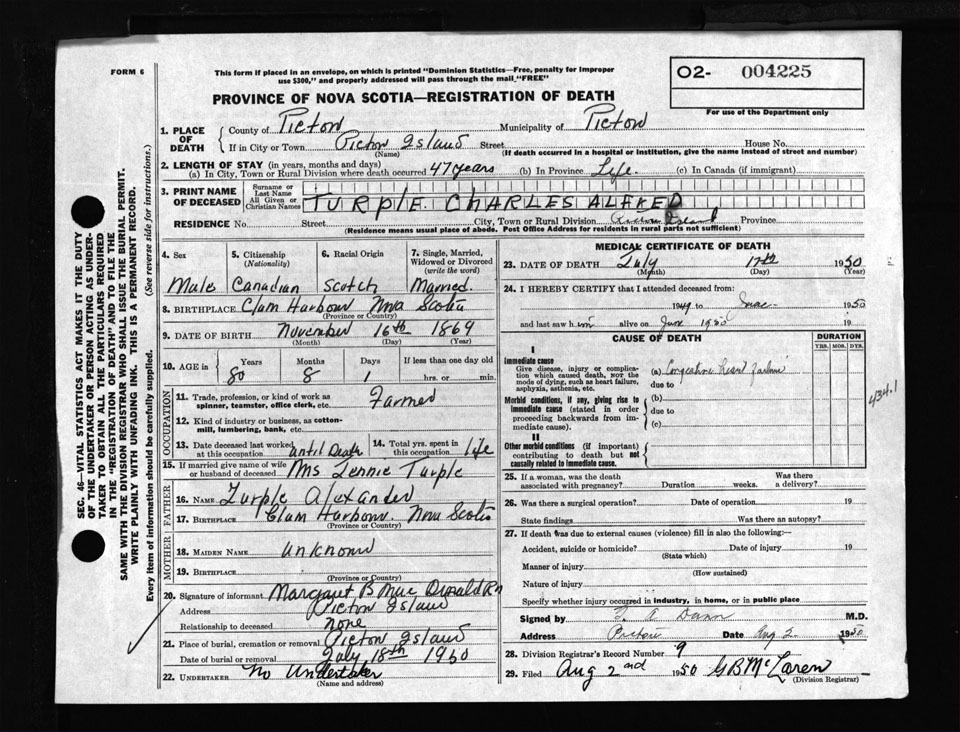 FORM 6
This form if placed in an envelope, on which is printed "Dominion Statistics—Free, penalty for improper
use $300," and properly addressed will pass through the mail "FREE"
O2- 004225
For use of the Department only
PROVINCE OF NOVA SCOTIA—REGISTRATION OF DEATH
1. PLACE OF DEATH
County of Pictou Municipality of Pictou
If in City or Town Pictou Island Street House No.
(Name) (If death occurred in a hospital or institution, give the name instead of street and number)
2. LENGTH OF STAY (in years, months and days)
(a) In City, Town or Rural Division where death occurred 47 years (b) In Province Life. (c) In Canada (if immigrant)
3. PRINT NAME OF DECEASED
Surname or Last Name
All Given or Christian Names
TURPLE CHARLES ALFRED
RESIDENCE No. Street City, Town or Rural Division Pictou Island Province
(Residence means usual place of abode. Post Office Address for residents in rural parts not sufficient)
4. Sex 5. Citizenship (Nationality) 6. Racial Origin 7. Single, Married, Widowed or Divorced (write the word)
Male Canadian Scotch Married.
8. BIRTHPLACE Clam Harbour Nova Scotia
(Province or Country)
9. DATE OF BIRTH November 16th 1869
(Month) (Day) (Year)
10. AGE in Years Months Days If less than one day old
80 8 1 hrs. or min.
OCCUPATION
11. Trade, profession, or kind of work as spinner, teamster, office clerk, etc. Farmer
12. Kind of industry or business, as cotton-mill, lumbering, bank, etc.
13. Date deceased last worked at this occupation until Death 14. Total yrs. spent in this occupation Life
15. If married give name of wife or husband of deceased Ms Jennie Turple
FATHER
16. NAME Turple Alexander
17. BIRTHPLACE Clam Harbour. Nova Scotia
(Province or Country)
MOTHER
18. MAIDEN NAME unknown
19. BIRTHPLACE
(Province or Country)
20. Signature of informant Margaret B Mac Donald Rn
Address Pictou Island
Relationship to deceased none
21. Place of burial, cremation or removal Pictou Island
Date of burial or removal July 18th 1950
22. UNDERTAKER No Undertaker
(Name and address)
MEDICAL CERTIFICATE OF DEATH
23. DATE OF DEATH July 17th 1950
(Month) (Day) (Year)
24. I HEREBY CERTIFY that I attended deceased from:
1949 to June 1950
and last saw him alive on June 1950 19
CAUSE OF DEATH
DURATION
YRS. MOS. DYS.
I
Immediate cause
Give disease, injury or complication which caused death, NOT the mode of dying, such as heart failure, asphyxia, asthenia, etc.
(a) Congestive heart failure
due to
Morbid conditions, if any, giving rise to immediate cause (stated in order proceeding backwards from immediate cause).
(b)
due to
(c)
II
Other morbid conditions (if important) contributing to death but not causally related to immediate cause.
434.1
25. If a woman, was the death associated with pregnancy? Duration weeks. Was there a delivery?
26. Was there a surgical operation? Date of operation 19
State findings Was there an autopsy?
27. If death was due to external causes (violence) fill in also the following:
Accident, suicide or homicide? Date of injury 19
(State which)
Manner of injury
(How sustained)
Nature of injury
Specify whether injury occurred in industry, in home, or in public place
Signed by A Dunn M.D.
Address Pictou Date Aug 2 1950
28. Division Registrar's Record Number 9
29. Filed Aug 2nd 1950 GB McLaren
(Division Registrar)
SEC. 46—VITAL STATISTICS ACT MAKES IT THE DUTY
OF THE UNDERTAKER OR PERSON ACTING AS UNDER-
TAKER TO OBTAIN ALL THE PARTICULARS REQUIRED
IN THE "REGISTRATION OF DEATH" AND TO FILE THE
SAME WITH THE DIVISION REGISTRAR WHO SHALL ISSUE THE BURIAL PERMIT.
WRITE PLAINLY WITH UNFADING INK. THIS IS A PERMANENT RECORD.
Every item of information should be carefully supplied. (See reverse side for instructions.)